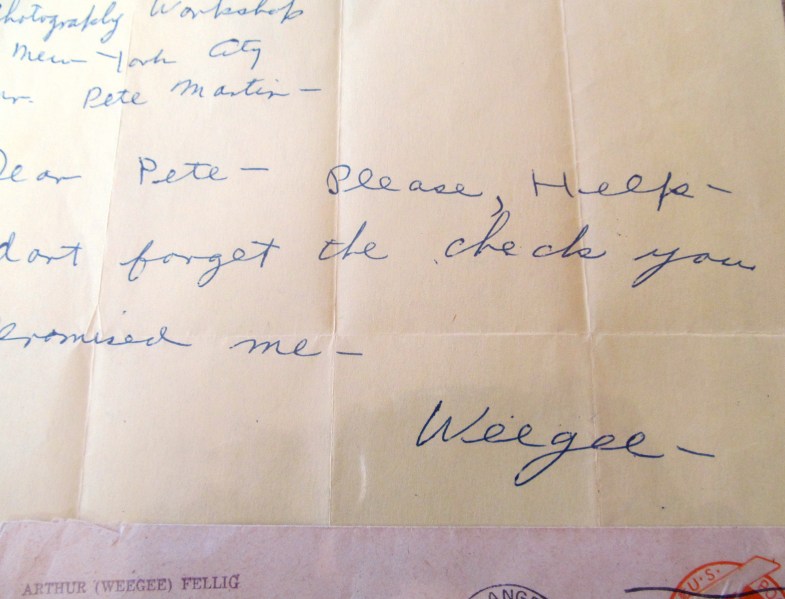 Photography Workshop
New York City
Mr. Pete Martin —
Dear Pete — Please, Help —
dont forget the check you
promised me —
Weegee —
ARTHUR (WEEGEE) FELLIG
U.S. PO
ANG